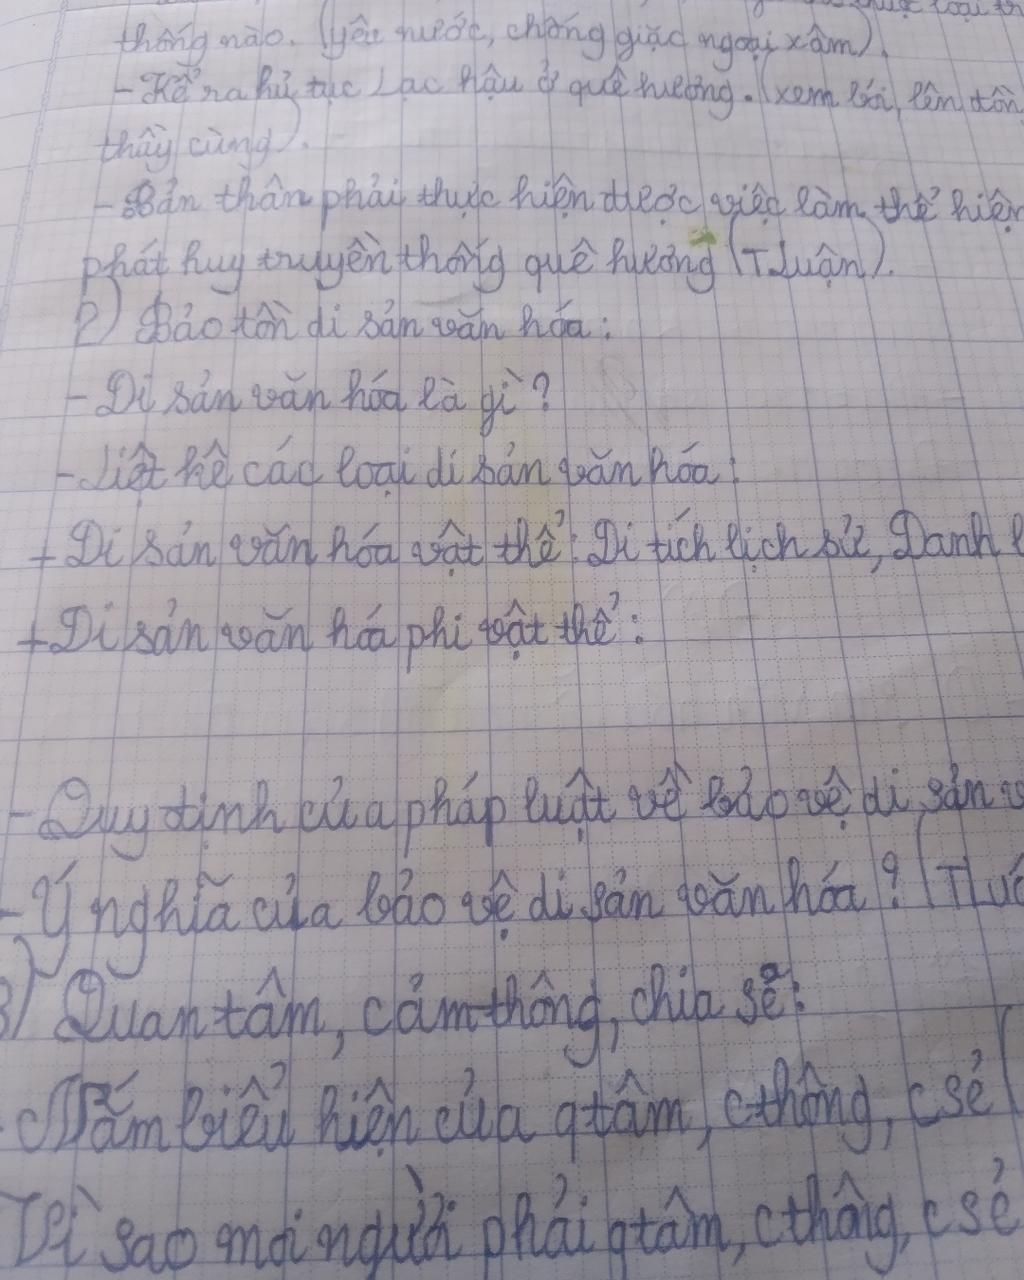 loại th
thống nào. (yêu nước, chống giặc ngoại xâm).
- Kể ra hủ tục Lạc hậu ở quê hương. (xem bói, lên đồn
thầy cúng).
- Bản thân phải thực hiện được việc làm thể hiện
phát huy truyền thống quê hương (TLuận).
2) Bảo tồn di sản văn hóa:
- Di sản văn hóa là gì?
- Liệt kê các loại di sản văn hóa:
+ Di sản văn hóa vật thể: Di tích lịch sử, Danh l
+ Di sản văn hóa phi vật thể:
- Quy định của pháp luật về bảo vệ di sản v
- Ý nghĩa của bảo vệ di sản văn hóa? (TLuậ
3) Quan tâm, cảm thông, chia sẻ:
- Nắm biểu hiện của qtâm, cthông, csẻ (
Vì sao mọi người phải qtâm, cthông, csẻ